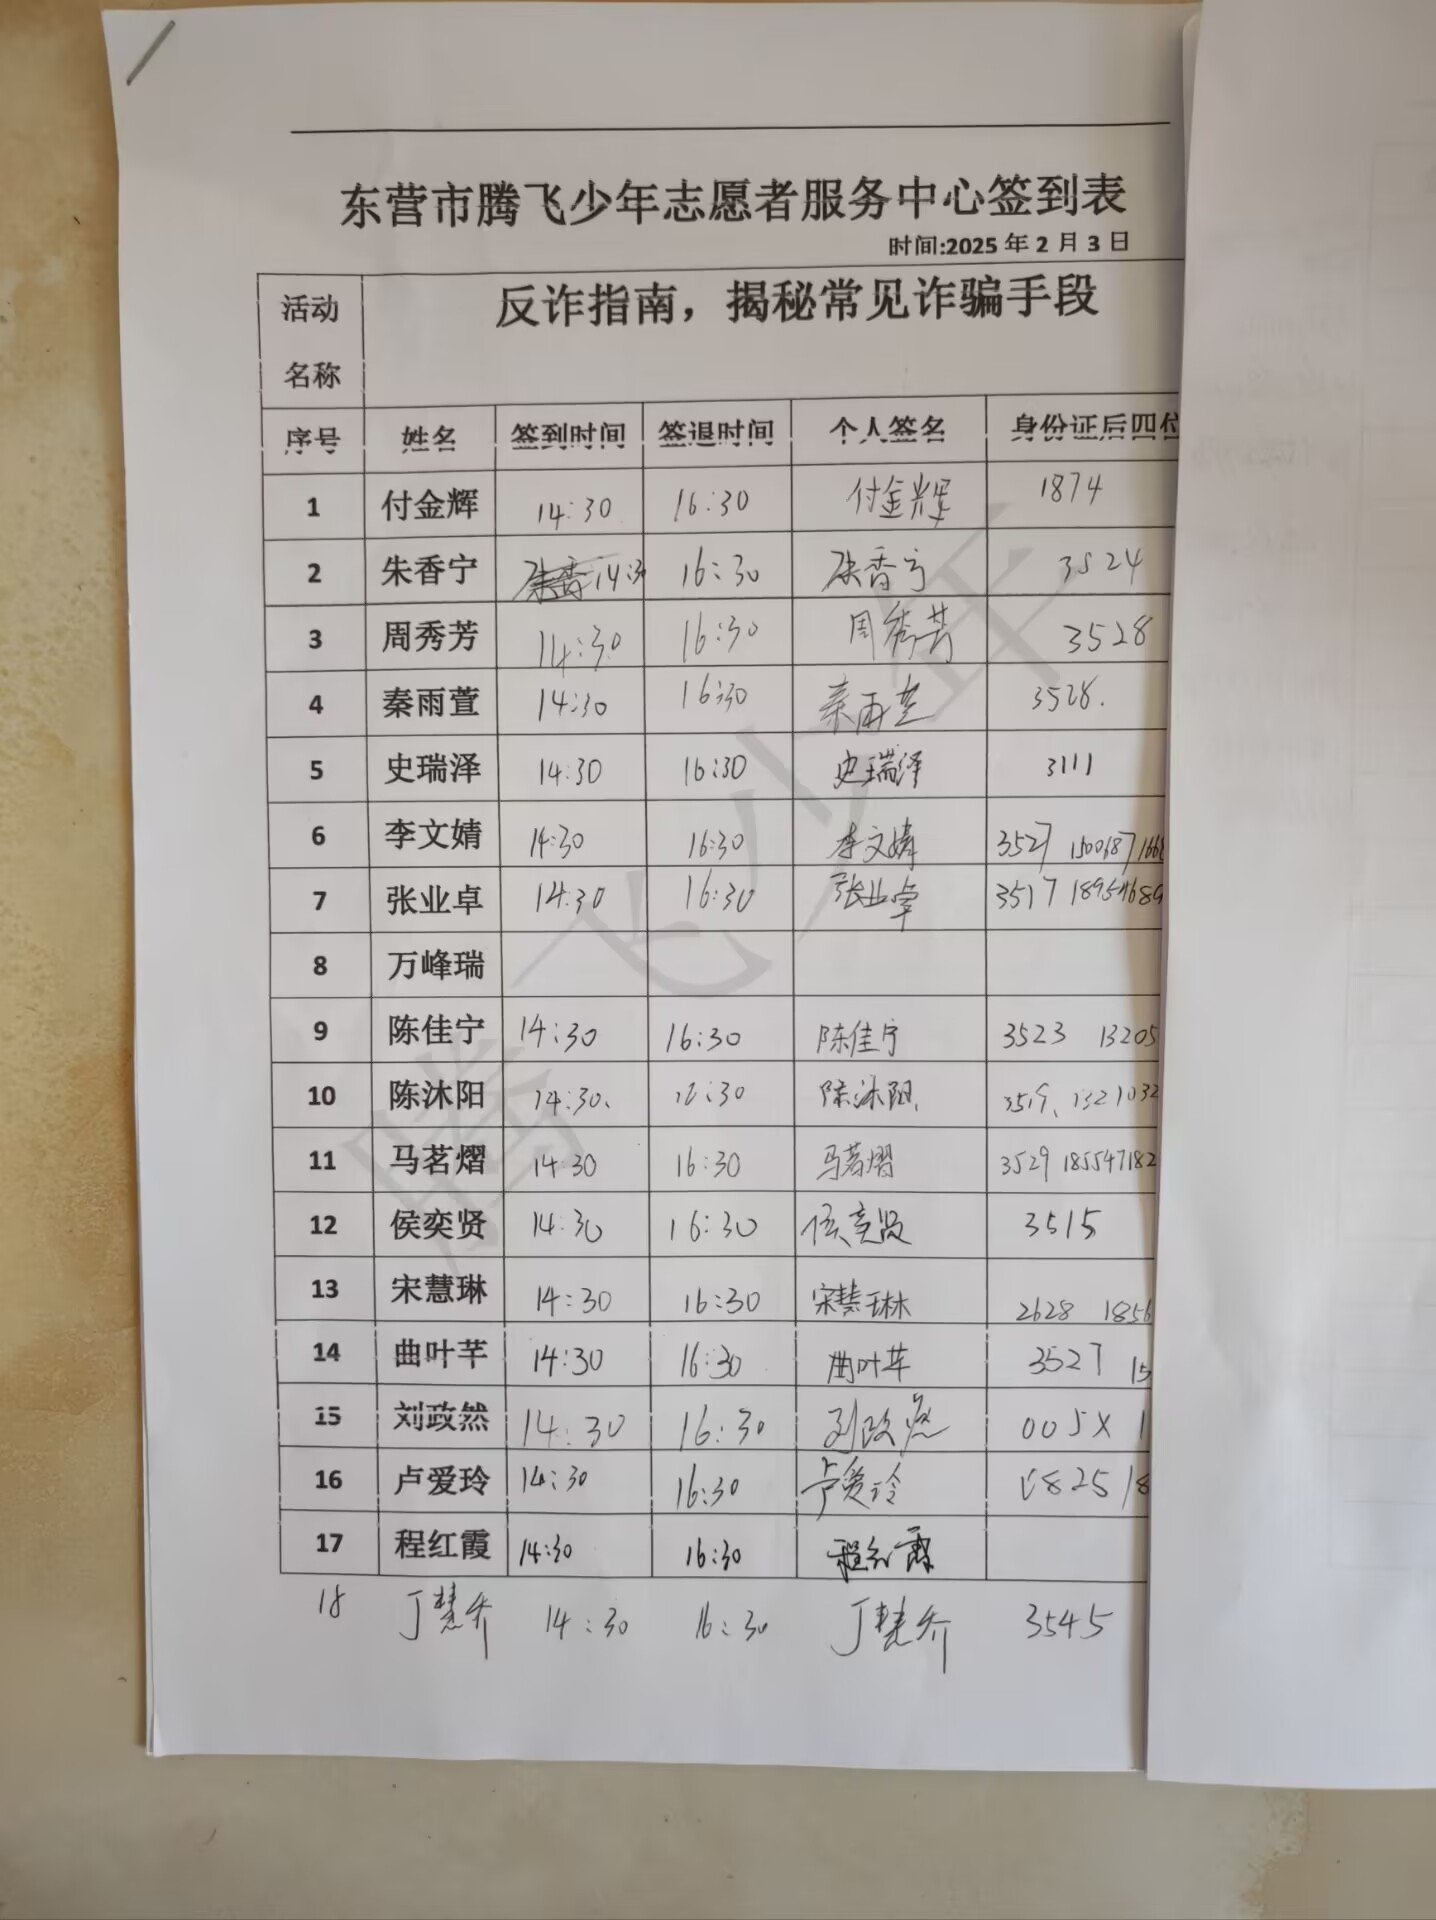 东营市腾飞少年志愿者服务中心签到表
时间:2025 年 2 月 3 日
活动名称 反诈指南，揭秘常见诈骗手段
序号 姓名 签到时间 签退时间 个人签名 身份证后四位
1 付金辉 14:30 16:30 付金辉 1874
2 朱香宁 14:30 16:30 朱香宁 3524
3 周秀芳 14:30 16:30 周秀芳 3528
4 秦雨萱 14:30 16:30 秦雨萱 3528.
5 史瑞泽 14:30 16:30 史瑞泽 3111
6 李文婧 14:30 16:30 李文婧 3527
7 张业卓 14:30 16:30 张业卓 3517
8 万峰瑞
9 陈佳宁 14:30 16:30 陈佳宁 3523 13205
10 陈沐阳 14:30 陈沐阳
11 马茗熠 14:30 16:30 马茗熠 3529 185547182
12 侯奕贤 14:30 16:30 侯奕贤 3515
13 宋慧琳 14:30 16:30 宋慧琳 2628 1856
14 曲叶芊 14:30 16:30 曲叶芊 3527 15
15 刘政然 14:30 16:30 刘政然 005X 1
16 卢爱玲 14:30 16:30 卢爱玲 18
17 程红霞 14:30 16:30 程红霞
18 丁慧乔 14:30 16:30 丁慧乔 3545
腾飞少年